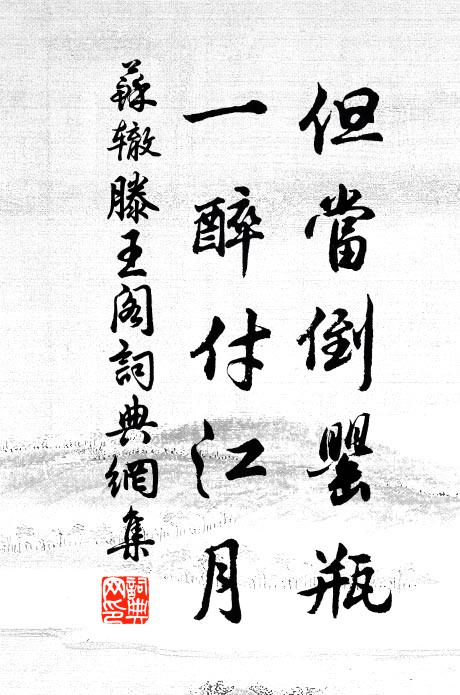 但當倒罌瓶
一醉付江月
蘇辙滕王阁詞典網集
詞典网印